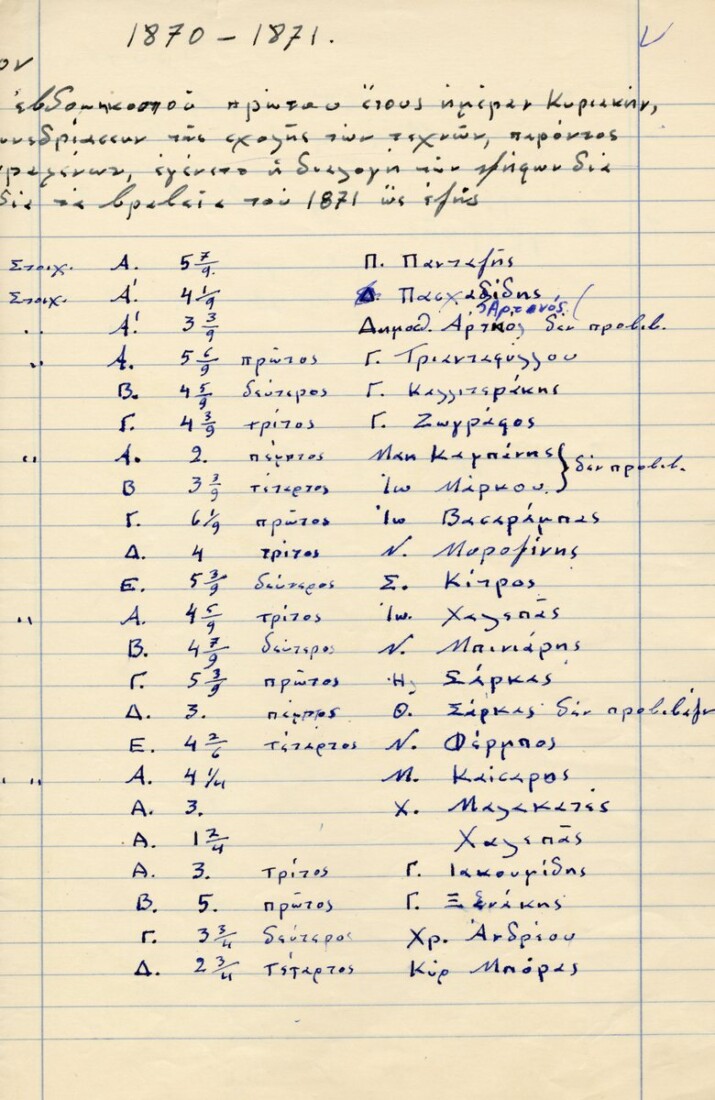 1870 – 1871.
ον
ἑβδομηκοστοῦ πρώτου ἔτους ἡμέραν Κυριακήν,
συνεδρίασεων τῆς σχολῆς τῶν τεχνῶν, παρόντος
ἐγένετο ἡ διαλογή τῶν ψήφων διά
διά τα βραβεῖα τοῦ 1871 ὡς ἑξῆς
Στοιχ. Α. 5 7/9. Π. Πανταζῆς
Στοιχ. Α' 4 1/9 Δ. Πασχαλίδης
Ἀρτινός.
" Α' 3 3/9 Δημοσ. δέν προβιβ.
" Α. 5 6/9 πρῶτος Γ. Τριανταφύλλου
Β. 4 5/9 δεύτερος Γ. Καλλιτεράκης
Γ. 4 3/9 τρίτος Γ. Ζωγράφος
" Α. 2. πέμπτος Μαν Καμπάνης } δέν προβιβ.
Β 3 3/9 τέταρτος Ἰω Μάρκου.
Γ. 6 1/9 πρῶτος Ἰω Βασαράμπας
Δ. 4 τρίτος Ν. Μοροζίνης
Ε. 5 3/9 δεύτερος Σ. Κίτρος
" Α. 4 5/9 τρίτος Ἰω. Χαλεπᾶς
Β. 4 7/9 δεύτερος Ν. Μπινιάρης
Γ. 5 3/9 πρῶτος Ἠλ Σάρκας
Δ. 3. πέμπτος Θ. Σάρκας δέν προβιβάζ
Ε. 4 2/6 τέταρτος Ν. Φέρμπος
" " Α. 4 1/4 Μ. Καίσαρης
Α. 3. Χ. Μαλακατές
Α. 1 2/4 Χαλεπᾶς
Α. 3. τρίτος Γ. Ἰακουμίδης
Β. 5. πρῶτος Γ. Ξενάκης
Γ. 3 3/4 δεύτερος Χρ. Ἀνδρέου
Δ. 2 3/4 τέταρτος Κύρ Μπόρας